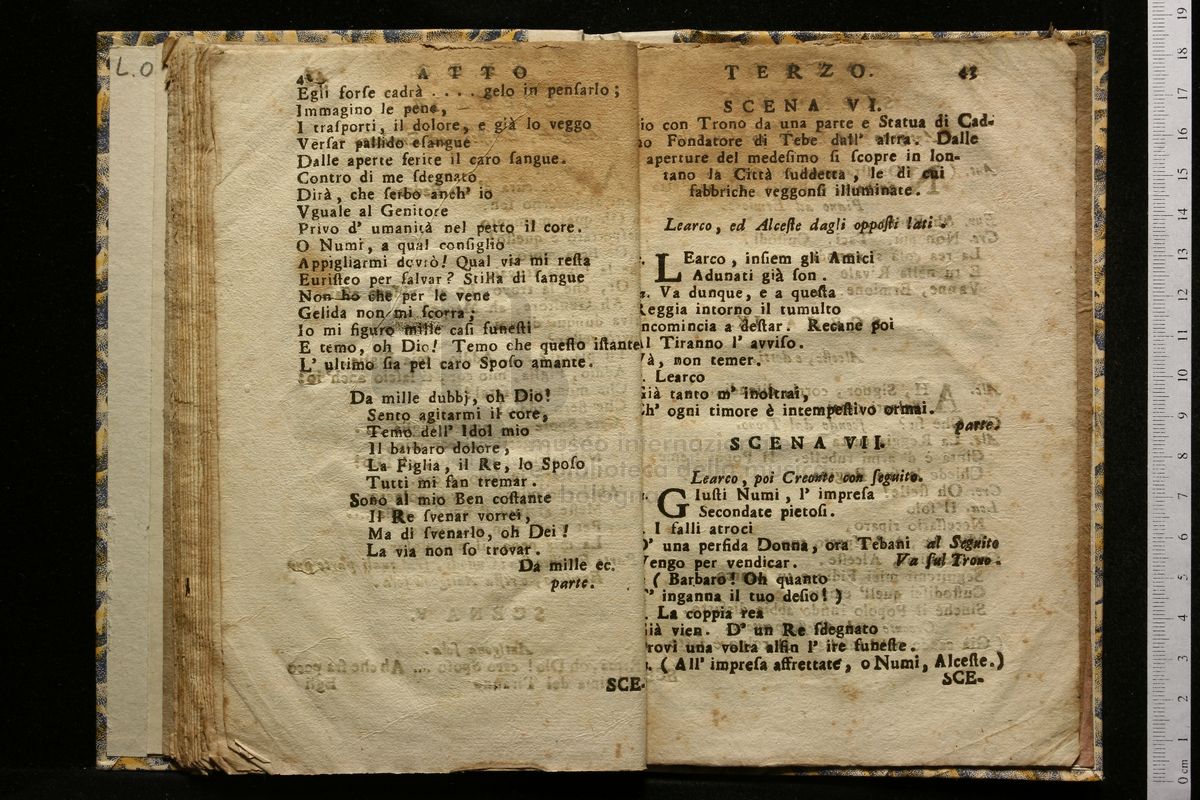 L.O
ATTO
Egli forſe cadrà . . . . gelo in penſarlo ;
Immagino le pene,
I traſporti, il dolore, e già lo veggo
Verſar pallido eſangue
Dalle aperte ferite il caro ſangue.
Contro di me ſdegnato
Dirà, che ſerbo anch' io
Vguale al Genitore
Privo d' umanità nel petto il core.
O Numi, a qual conſiglio
Appigliarmi dovrò! Qual via mi reſta
Euriſteo per ſalvar? Stilla di ſangue
Non ho che per le vene
Gelida non mi ſcorra;
Io mi figuro mille caſi funeſti
E temo, oh Dio! Temo che queſto iſtante
L' ultimo ſia pel caro Spoſo amante.
Da mille dubbj, oh Dio!
Sento agitarmi il core,
Temo dell' Idol mio
Il barbaro dolore,
La Figlia, il Re, lo Spoſo
Tutti mi fan tremar.
Sono al mio Ben coſtante
Il Re ſvenar vorrei,
Ma di ſvenarlo, oh Dei!
La via non ſo trovar.
Da mille ec.
parte.
SCE-
TERZO. 43
SCENA VI.
io con Trono da una parte e Statua di Cad-
o Fondatore di Tebe dall' altra. Dalle
aperture del medeſimo ſi ſcopre in lon-
tano la Città ſuddetta, le di cui
fabbriche veggonſi illuminate.
Learco, ed Alceſte dagli oppoſti lati.
LEarco, inſiem gli Amici
Adunati già ſon.
Va dunque, e a queſta
Reggia intorno il tumulto
ncomincia a deſtar. Recane poi
Al Tiranno l' avviſo.
Và, non temer.
Learco
Già tanto m' inoltrai,
Ch' ogni timore è intempeſtivo ormai.
parte.
SCENA VII.
Learco, poi Creonte con ſeguito.
GIuſti Numi, l' impreſa
Secondate pietoſi.
I falli atroci
D' una perfida Donna, ora Tebani al Seguito
Vengo per vendicar. Va ſul Trono.
( Barbaro! Oh quanto
T' inganna il tuo deſio! )
La coppia rea
Già vien. D' un Re ſdegnato
rovi una volta alfin l' ire funeſte.
( All' impreſa affrettate, o Numi, Alceſte.)
SCE-